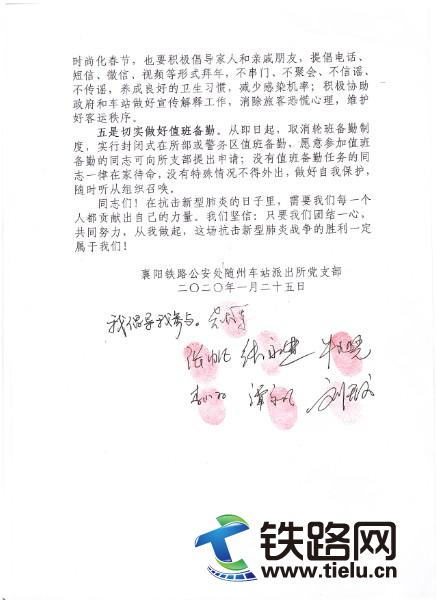 时尚化春节，也要积极倡导家人和亲戚朋友，提倡电话、
短信、微信、视频等形式拜年，不串门、不聚会、不信谣、
不传谣，养成良好的卫生习惯，减少感染机率；积极协助
政府和车站做好宣传解释工作，消除旅客恐慌心理，维护
好客运秩序。
五是切实做好值班备勤。从即日起，取消轮班备勤制
度，实行封闭式在所部或警务区值班备勤，愿意参加值班
备勤的同志可向所支部提出申请；没有值班备勤任务的同
志一律在家待命，没有特殊情况不得外出，做好自我保护，
随时听从组织召唤。
同志们！在抗击新型肺炎的日子里，需要我们每一个
人都贡献出自己的力量。我们坚信：只要我们团结一心，
共同努力，从我做起，这场抗击新型肺炎战争的胜利一定
属于我们！
襄阳铁路公安处随州车站派出所党支部
二〇二〇年一月二十五日
我倡导我参与。
铁路网
www.tielu.cn